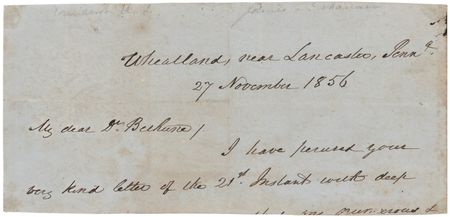 Wheatland, near Lancaster, Penna.
27 November 1856
My dear Dr. Bethune/
I have perused your
very kind letter of the 21st. Instant with deep